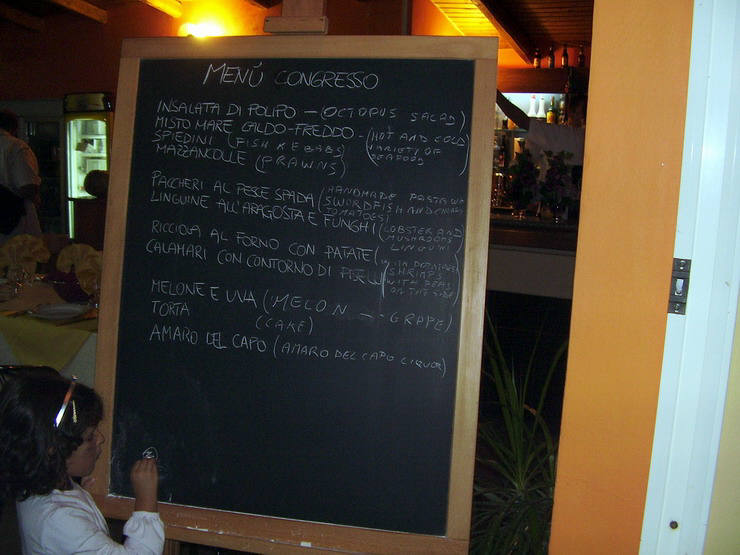 MENÚ CONGRESSO
INSALATA DI POLIPO - (OCTOPUS SALAD)
MISTO MARE CALDO-FREDDO - (HOT AND COLD
VARIETY OF
SEAFOOD)
SPIEDINI (FISH KEBABS)
MAZZANCOLLE (PRAWNS)
PACCHERI AL PESCE SPADA (HANDMADE PASTA W
SWORDFISH AND
TOMATOES)
LINGUINE ALL'ARAGOSTA E FUNGHI (LOBSTER AND
MUSHROOMS
LINGUINI)
RICCIOLA AL FORNO CON PATATE (
WITH POTATOES
CALAMARI CON CONTORNO DI
(SHRIMPS
WITH PEAS
ON THE SIDE)
MELONE E UVA (MELON - GRAPE)
TORTA (CAKE)
AMARO DEL CAPO (AMARO DEL CAPO LIQUOR)